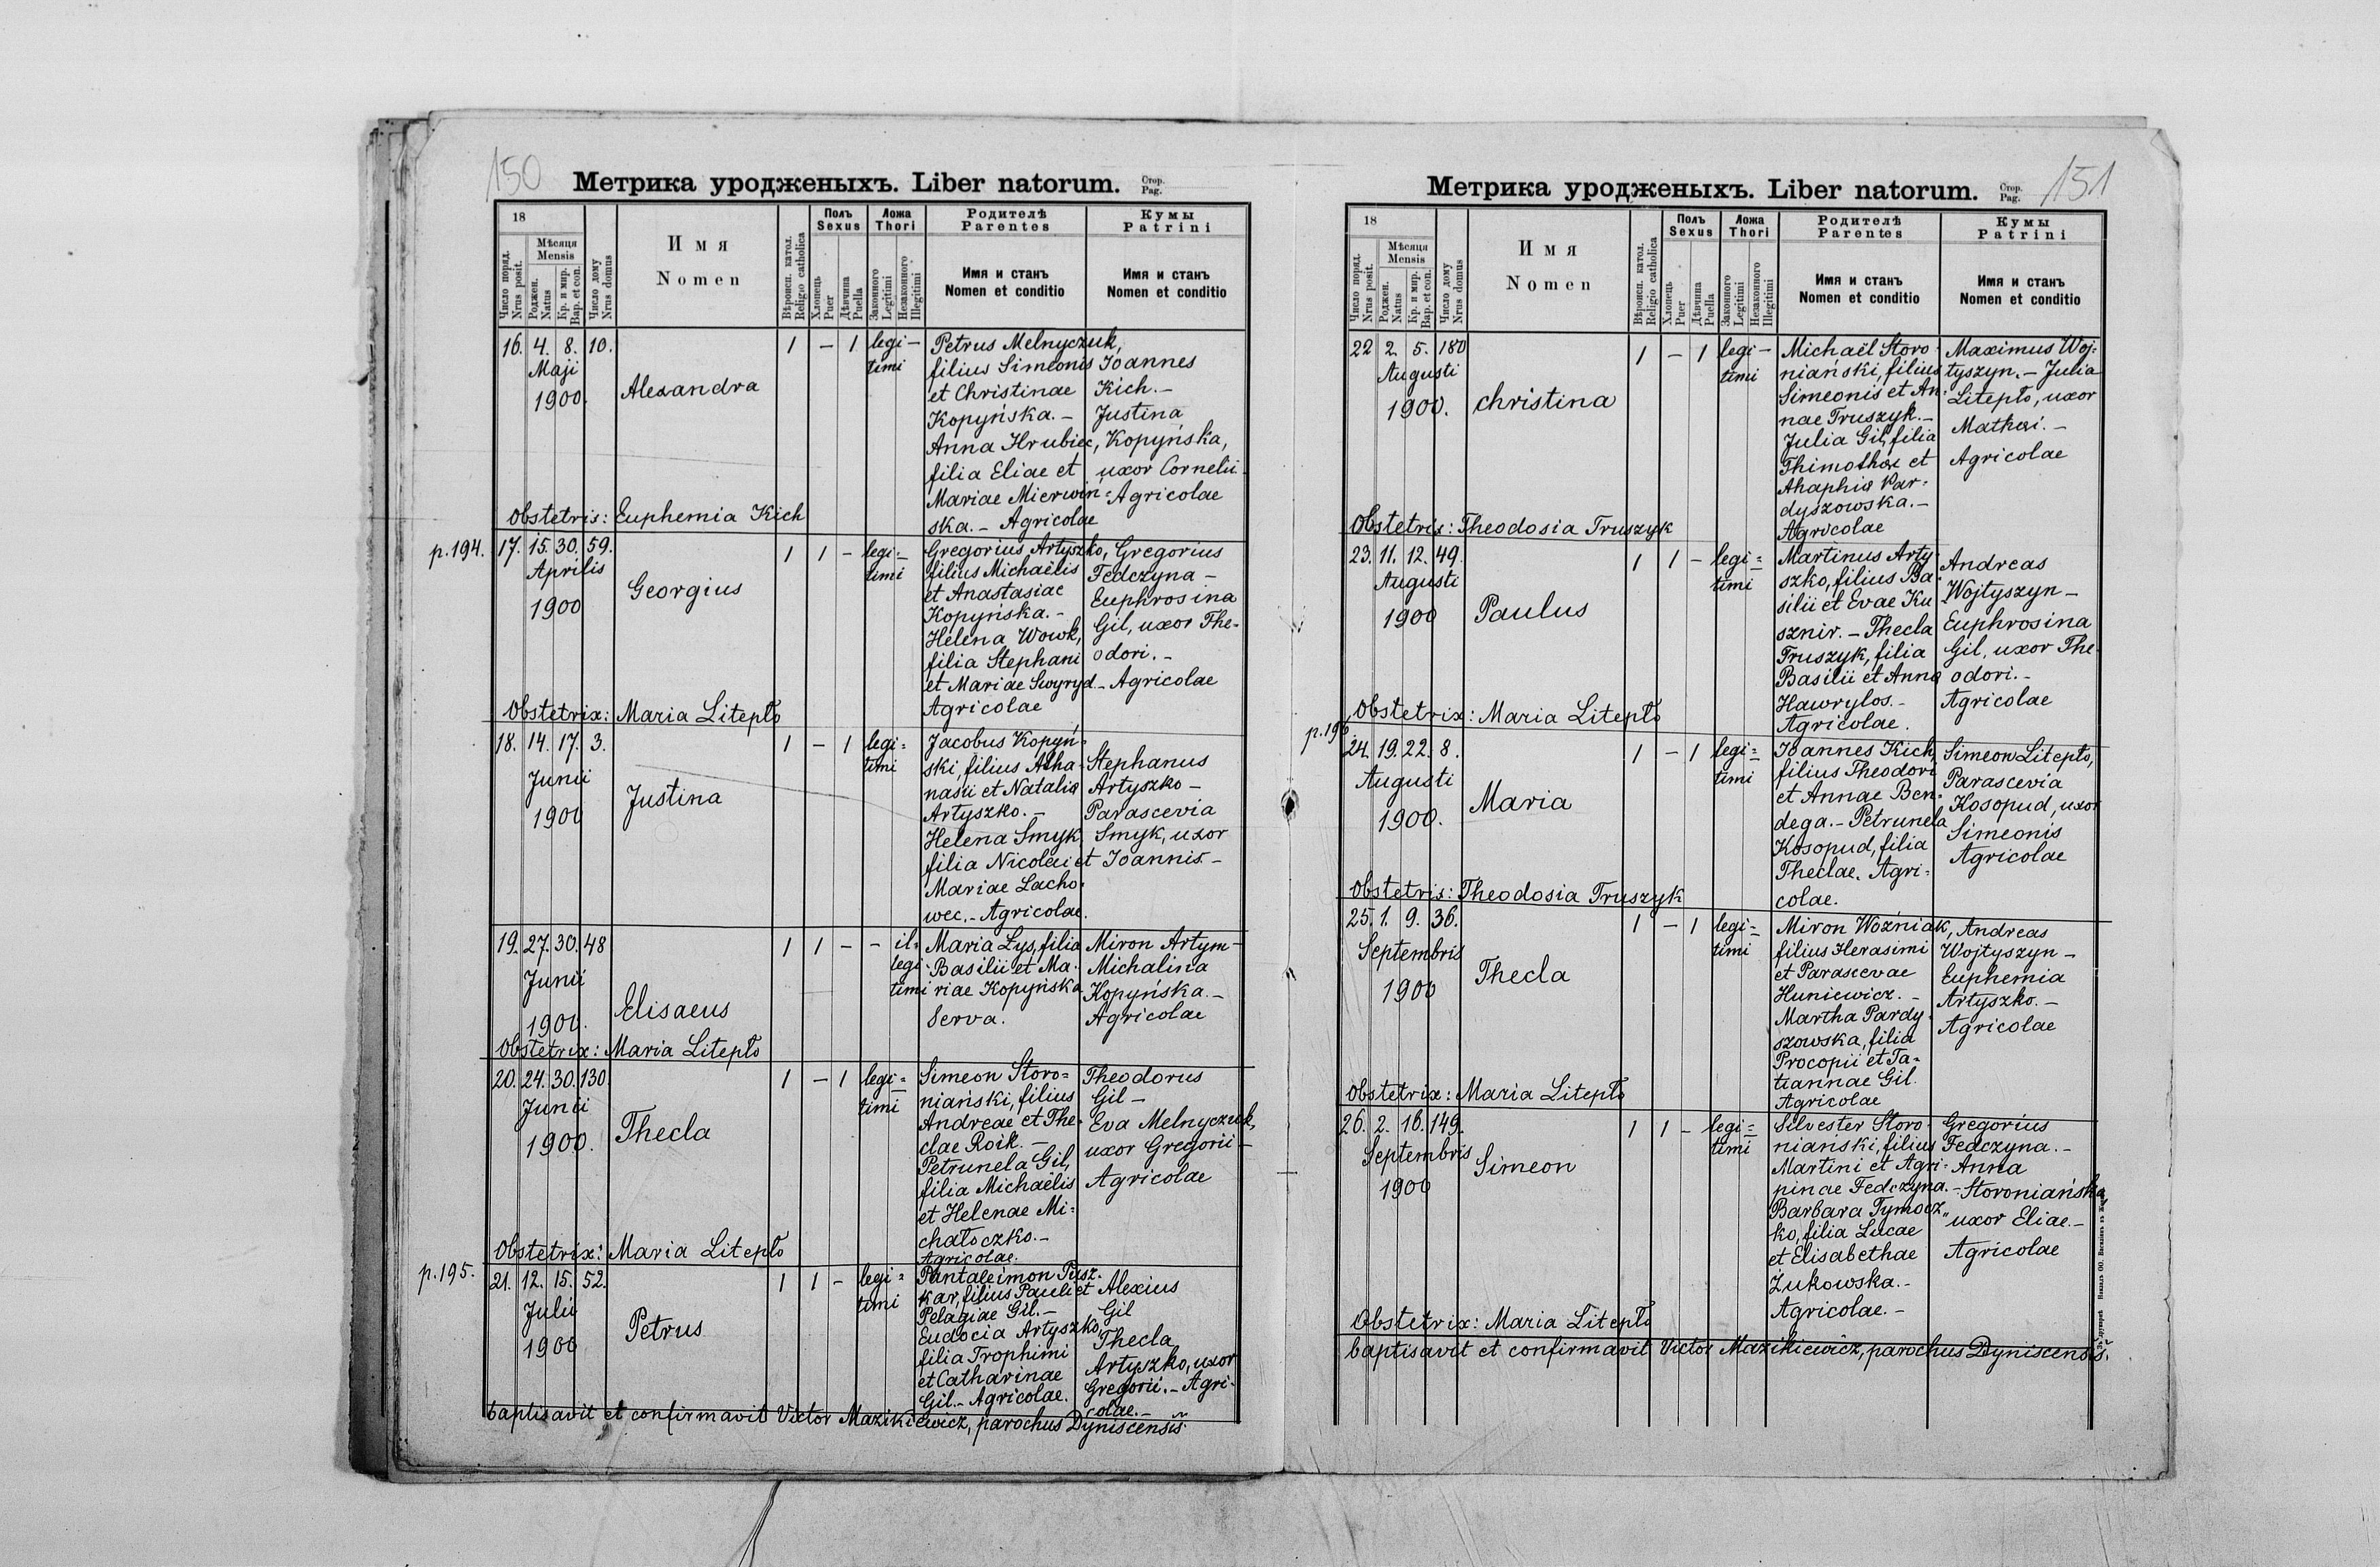 150
Метрика уродженыхъ. Liber natorum. Стор. Pag.
18
Число поряд. Nrus posit.
Мѣсяця Mensis
Роджен. Natus
Кр. и мир. Bap. et con.
Число дому Nrus domus
Имя
Nomen
Вѣроисп. катол. Religio catholica
Полъ Sexus
Хлопець Puer
Дѣвчина Puella
Ложа Thori
Законного Legitimi
Незаконного Illegitimi
Родителѣ Parentes
Имя и станъ
Nomen et conditio
Кумы Patrini
Имя и станъ
Nomen et conditio
16. 4. 8. 10. 1 – 1 legi–
timi
Maji
1900.
Alexandra
Petrus Melnyczuk,
filius Simeonis
et Christinae
Kopyńska. –
Anna Hrubiec,
filia Eliae et
Mariae Mierwin=
ska. – Agricolae
Joannes
Kich. –
Justina
Kopyńska,
uxor Cornelii.
Agricolae
Obstetris: Euphemia Kich
p. 194.
17. 15. 30. 59. 1 1 – legi=
timi
Aprilis
1900
Georgius
Gregorius Artyszko,
filius Michaëlis
et Anastasiae
Kopyńska. –
Helena Wowk,
filia Stephani
et Mariae Swyryd. –
Agricolae
Gregorius
Fedczyna –
Euphrosina
Gil, uxor The=
odori. –
Agricolae
Obstetrix: Maria Litepło
18. 14. 17. 3. 1 – 1 legi=
timi
Junii
1900
Justina
Jacobus Kopyń=
ski, filius Atha=
nasii et Nataliæ
Artyszko. –
Helena Smyk,
filia Nicolai et
Mariae Lacho=
wec. – Agricolae.
Stephanus
Artyszko –
Parascevia
Smyk, uxor
Joannis –
19. 27. 30. 48 1 1 – – il=
legi=
timi
Junii
1900.
Elisaeus
Maria Lys, filia
Basilii et Ma=
riae Kopyńska
Serva.
Miron Artym –
Michalina
Kopyńska. –
Agricolae
Obstetrix: Maria Litepło
20. 24. 30. 130. 1 – 1 legi=
timi
Junii
1900.
Thecla
Simeon Storo=
niański, filius
Andreae et The=
clae Roik. –
Petrunela Gil,
filia Michaëlis
et Helenae Mi=
chałoczko. –
Agricolae.
Theodorus
Gil –
Eva Melnyczuk,
uxor Gregorii –
Agricolae
Obstetrix: Maria Litepło
p. 195.
21. 12. 15. 52. 1 1 – legi=
timi
Julii
1900
Petrus
Pantaleimon Pusz=
kar, filius Pauli et
Pelagiae Gil. –
Eudocia Artyszko,
filia Trophimi
et Catharinae
Gil. – Agricolae.
Alexius
Gil
Thecla
Artyszko, uxor
Gregorii. – Agri=
colae. –
baptisavit et confirmavit Victor Mazikiewicz, parochus Dyniscensis.
151
Метрика уродженыхъ. Liber natorum. Стор. Pag.
18
Число поряд. Nrus posit.
Мѣсяця Mensis
Роджен. Natus
Кр. и мир. Bap. et con.
Число дому Nrus domus
Имя
Nomen
Вѣроисп. катол. Religio catholica
Полъ Sexus
Хлопець Puer
Дѣвчина Puella
Ложа Thori
Законного Legitimi
Незаконного Illegitimi
Родителѣ Parentes
Имя и станъ
Nomen et conditio
Кумы Patrini
Имя и станъ
Nomen et conditio
22 2. 5. 180 1 – 1 legi–
timi
Augusti
1900.
Christina
Michaël Storo=
niański, filius
Simeonis et An=
nae Truszyk. –
Julia Gil, filia
Thimothæi et
Ahaphiæ Par=
dyszowska. –
Agricolae
Maximus Woj=
tyszyn. – Julia
Litepło, uxor
Mathæi. –
Agricolae
Obstetris: Theodosia Truszyk
23. 11. 12. 49. 1 1 – legi=
timi
Augusti
1900
Paulus
Martinus Arty=
szko, filius Ba=
silii et Evae Ku=
sznir. – Thecla
Truszyk, filia
Basilii et Annæ
Hawrylos. –
Agricolae.
Andreas
Wojtyszyn –
Euphrosina
Gil, uxor The=
odori. –
Agricolae
Obstetrix: Maria Litepło
p. 196
24. 19. 22. 8. 1 – 1 legi=
timi
Augusti
1900.
Maria
Joannes Kich,
filius Theodori
et Annae Ben=
dega. – Petrunela
Kosopud, filia
Theclae. Agri=
colae.
Simeon Litepło,
Parascevia
Kosopud, uxor
Simeonis
Agricolae
Obstetris: Theodosia Truszyk
25. 1. 9. 36. 1 – 1 legi=
timi
Septembris
1900
Thecla
Miron Woźniak,
filius Herasimi
et Parascevae
Huniewicz. –
Martha Pardy=
szowska, filia
Procopii et Ta=
tiannae Gil.
Agricolae
Andreas
Wojtyszyn –
Euphemia
Artyszko. –
Agricolae
Obstetrix: Maria Litepło
26. 2. 16. 149. 1 1 – legi=
timi
Septembris
1900
Simeon
Silvester Storo=
niański, filius
Martini et Agri=
pinae Fedczyna. –
Barbara Tymocz„
ko, filia Lucae
et Elisabethae
Żukowska. –
Agricolae. –
Gregorius
Fedczyna. –
Anna
Storoniańska,
uxor Eliae. –
Agricolae
Obstetrix: Maria Litepło
baptisavit et confirmavit Victor Mazikiewicz, parochus Dyniscensis.